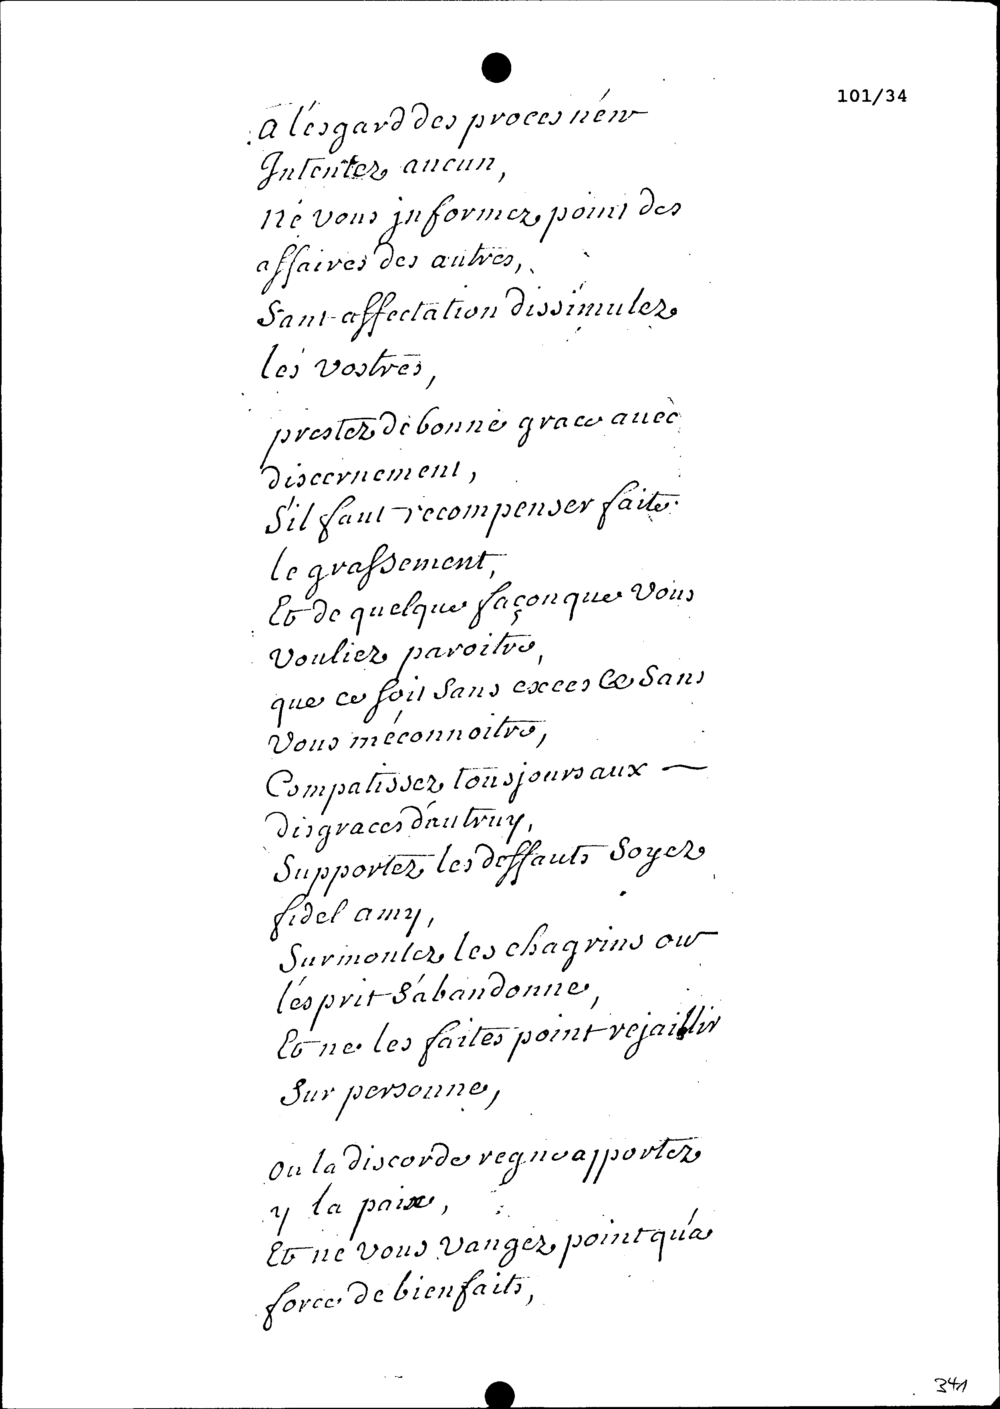 101/34
A l'esgard des proces n'en
Intentez aucun,
Ne vous jnformez point des
affaires des autres,
Sans affectation dissimulez
les vostres,
prestez de bonne grace auec
discernement,
S'il faut recompenser faite
le grassement,
Et de quelque façon que Vous
Vouliez paroitre,
que ce soit Sans exces Et Sans
Vous méconnoitre,
Compatissez tousjours aux —
disgraces d'autruy,
Supportez les deffauts Soyez
fidel amy,
Surmontez les chagrins ou
l'esprit S'abandonne,
Et ne les faites point rejaillir
Sur personne,
Ou la discorde regne apportez
y la paix,
Et ne Vous Vangez point qu'a
force de bienfaits,
341